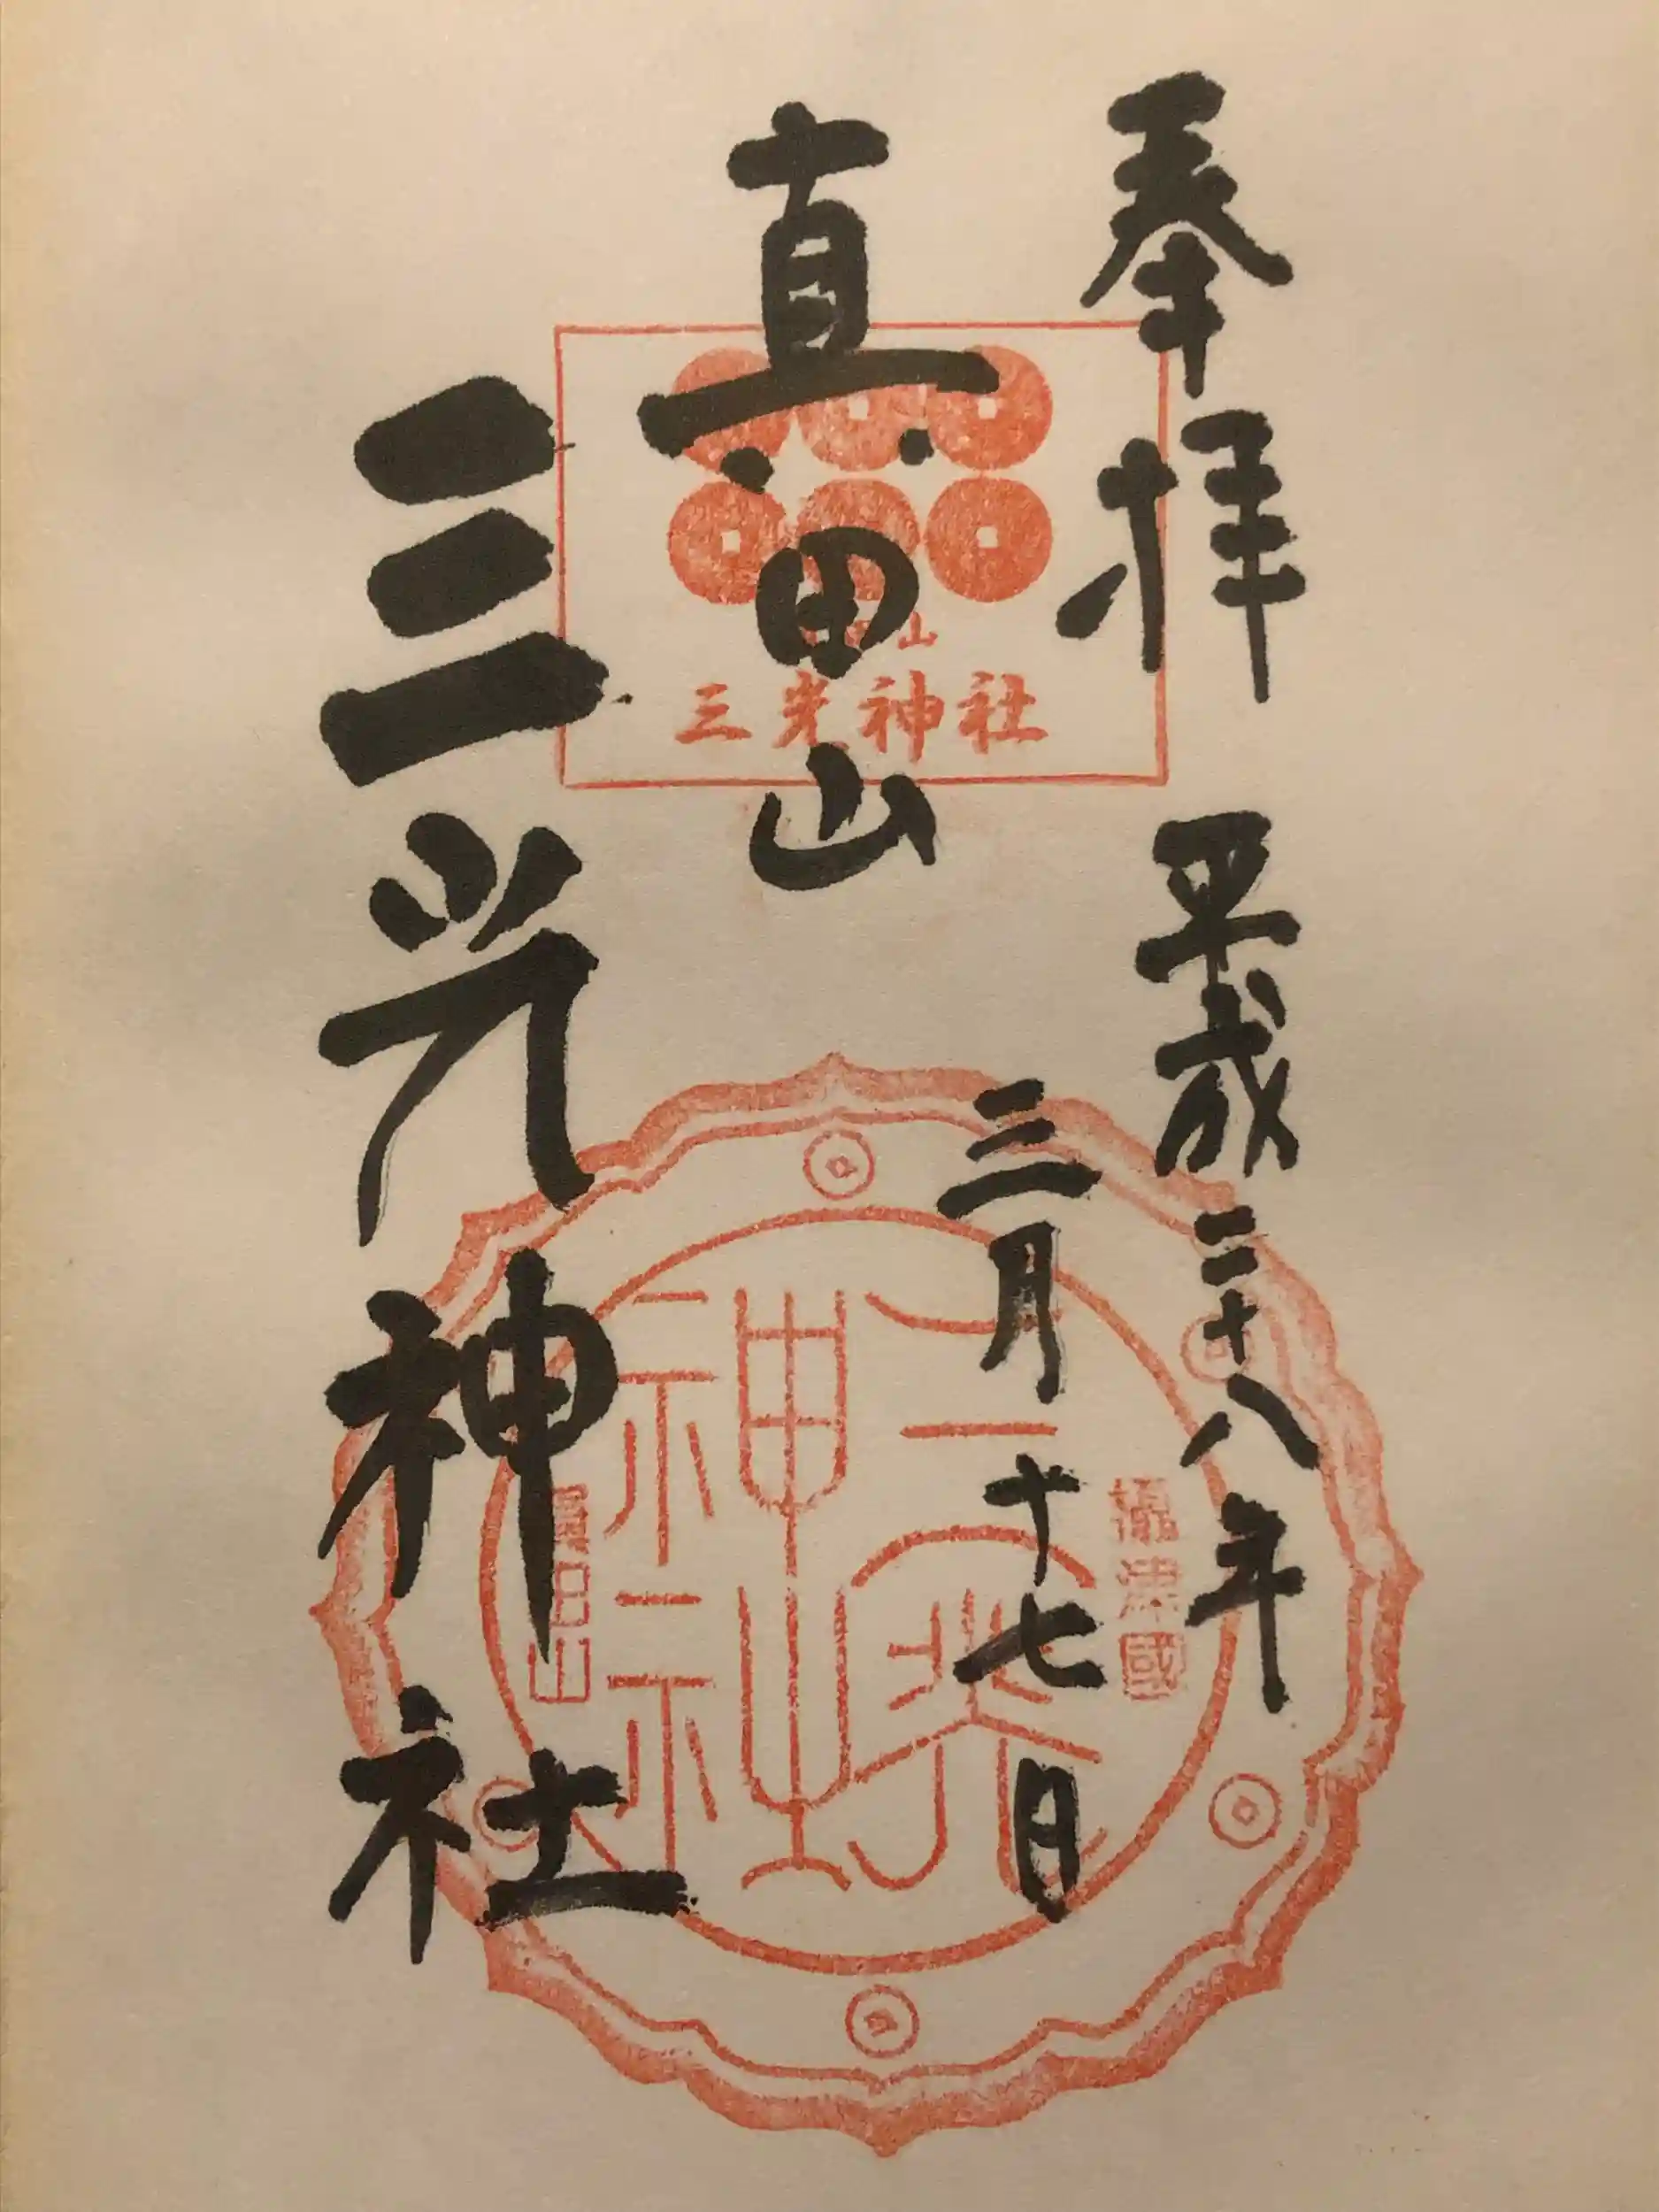 奉拝 平成二十八年
三月十七日
真田山
三光神社
山
三光神社
攝津國
神社